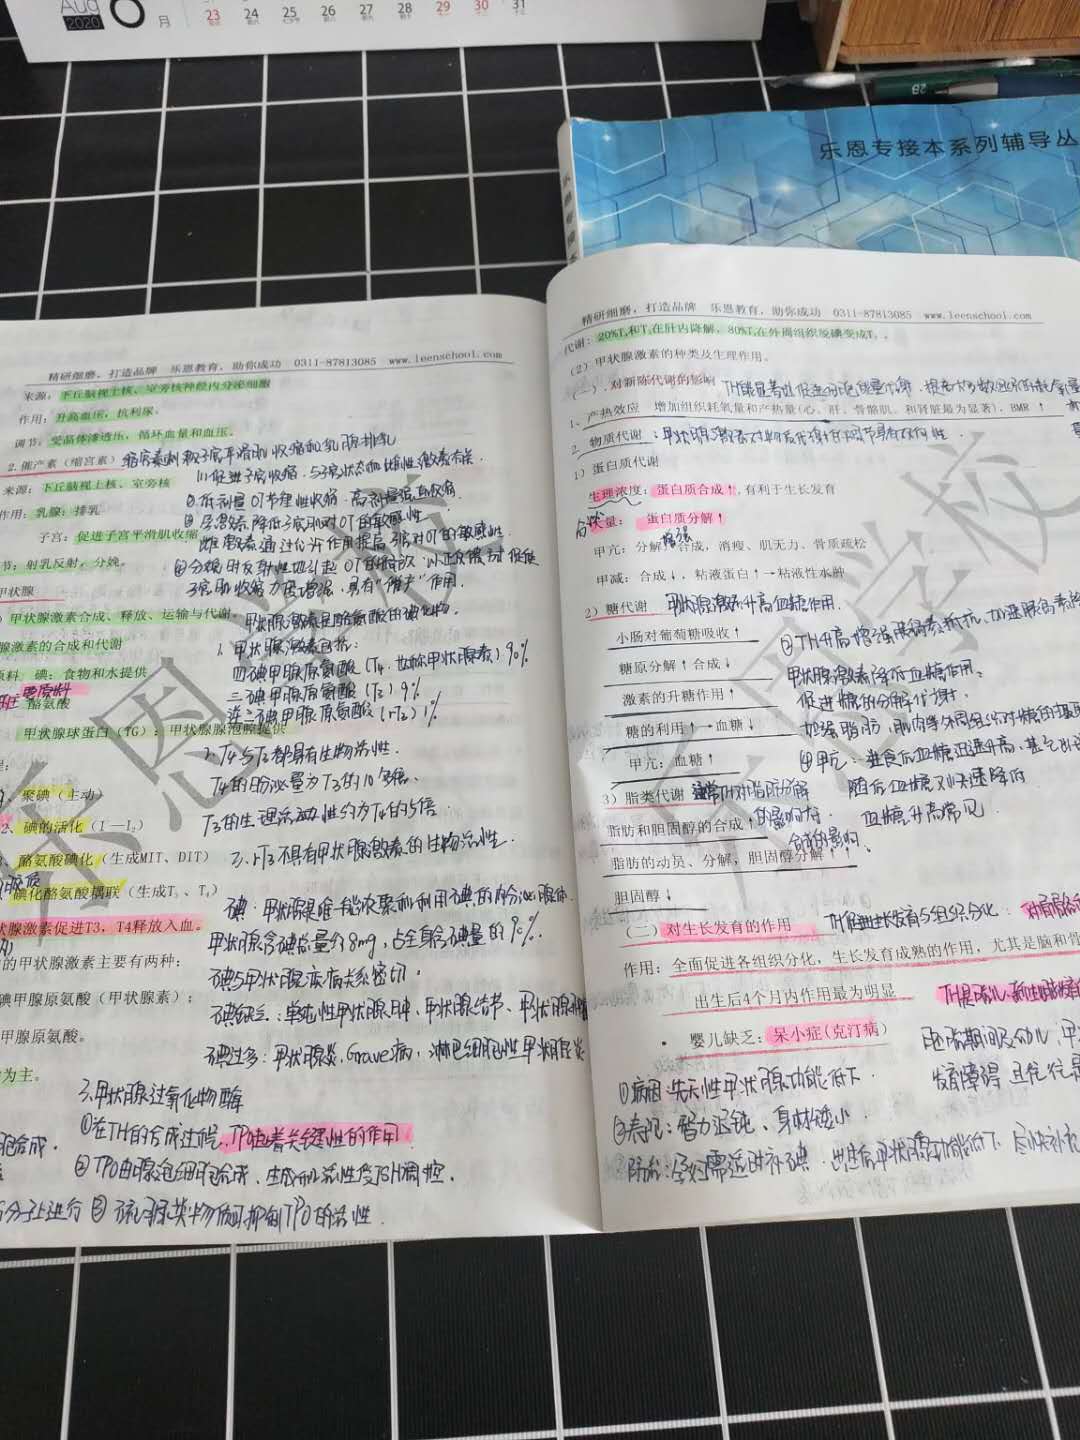 Aug
2020
月
23
24
25
26
27
28
29
30
31
2B
乐恩专接本系列辅导丛
精研细磨，打造品牌 乐恩教育，助你成功 0311-87813085 www.leenschool.com
来源：下丘脑视上核、室旁核神经内分泌细胞
作用：升高血压，抗利尿。
调节：受晶体渗透压，循环血量和血压。
2.催产素（缩宫素）缩宫素刺激子宫平滑肌收缩和乳腺排乳
(1)促进子宫收缩，与子宫状态和雌性激素有关。
来源：下丘脑视上核、室旁核
①低剂量OT节律性收缩，高剂量强直收缩
作用：乳腺：排乳
②孕激素降低子宫肌对OT的敏感性
子宫：促进子宫平滑肌收缩
雌激素通过允许作用提高子宫对OT的敏感性
节：射乳反射，分娩。
③分娩时反射性地引起OT的释放，以正反馈方式促使
子宫肌收缩力度增强，具有"催产"作用。
甲状腺
甲状腺激素合成、释放、运输与代谢 甲状腺激素是酪氨酸的碘化物
腺激素的合成和代谢
1.甲状腺激素包括：
原料 碘：食物和水提供
四碘甲腺原氨酸（T4，也称甲状腺素）90%
要原料
酪氨酸
三碘甲腺原氨酸（T3）9%
逆三碘甲腺原氨酸（rT3）1%
甲状腺球蛋白（TG）：甲状腺腺泡腺提供
2.T4与T3都具有生物活性.
T4的分泌量为T3的10多倍.
聚碘（主动）
T3的生理活动性约为T4的5倍
2、碘的活化（I⁻—I₂）
酪氨酸碘化（生成MIT、DIT）
rT3不具有甲状腺激素的生物活性.
碘化酪氨酸耦联（生成T₃、T₄）
碘：甲状腺是唯一能浓聚和利用碘的内分泌腺体.
状腺激素促进T3，T4释放入血。
甲状腺含碘总量约8mg，占全身含碘量的90%.
的甲状腺激素主要有两种：
碘与甲状腺疾病关系密切.
碘甲腺原氨酸（甲状腺素）；
碘缺乏：单纯性甲状腺肿、甲状腺结节、甲状腺肿瘤
甲腺原氨酸。
碘过多：甲状腺炎，Grave病，淋巴细胞性甲状腺炎
为主。
3.甲状腺过氧化物酶
①在TH的合成过程，TPO起着关键性的作用
②TPO由腺泡细胞合成，生成和活性受TSH调控.
分子上进行 ③硫脲类物质可抑制TPO的活性.
精研细磨，打造品牌 乐恩教育，助你成功 0311-87813085 www.leenschool.com
代谢：20%T₄和T₃在肝内降解，80%T₄在外周组织脱碘变成T₃。
（2）甲状腺激素的种类及生理作用。
（一）.对新陈代谢的影响 TH能显著性促进机体能量代谢，提高大多数组织的耗氧量
1、产热效应 增加组织耗氧量和产热量(心、肝、骨骼肌、和肾脏最为显著)，BMR ↑
2. 物质代谢：甲状腺激素对物质代谢作用调节具有双向性.
1）蛋白质代谢
生理浓度：蛋白质合成↑，有利于生长发育
大量：蛋白质分解↑
甲亢：分解增强合成，消瘦、肌无力、骨质疏松
甲减：合成↓，粘液蛋白↑→粘液性水肿
2）糖代谢 甲状腺激素升高血糖作用.
小肠对葡萄糖吸收↑
糖原分解↑合成↓
甲状腺激素降低血糖作用。
激素的升糖作用↑
促进糖的分解代谢.
糖的利用↑→血糖↓
甲亢：血糖↑
④甲亢：进食后血糖迅速升高，甚至
3）脂类代谢
随后血糖又快速降低
脂肪和胆固醇的合成↑
血糖升高常见.
脂肪的动员、分解，胆固醇分解↑↑
胆固醇↓
（二）对生长发育的作用 TH促进生长发育与组织分化.
作用：全面促进各组织分化，生长发育成熟的作用，尤其是脑和骨
出生后4个月内作用最为明显
• 婴儿缺乏：呆小症(克汀病)
胚胎期间及幼儿，甲
①病因：先天性甲状腺功能低下.
发育障碍
②表现：智力迟钝、身材矮小
防治：孕妇需适时补碘. 出生后甲状腺功能低下 尽快补充
乐恩学校